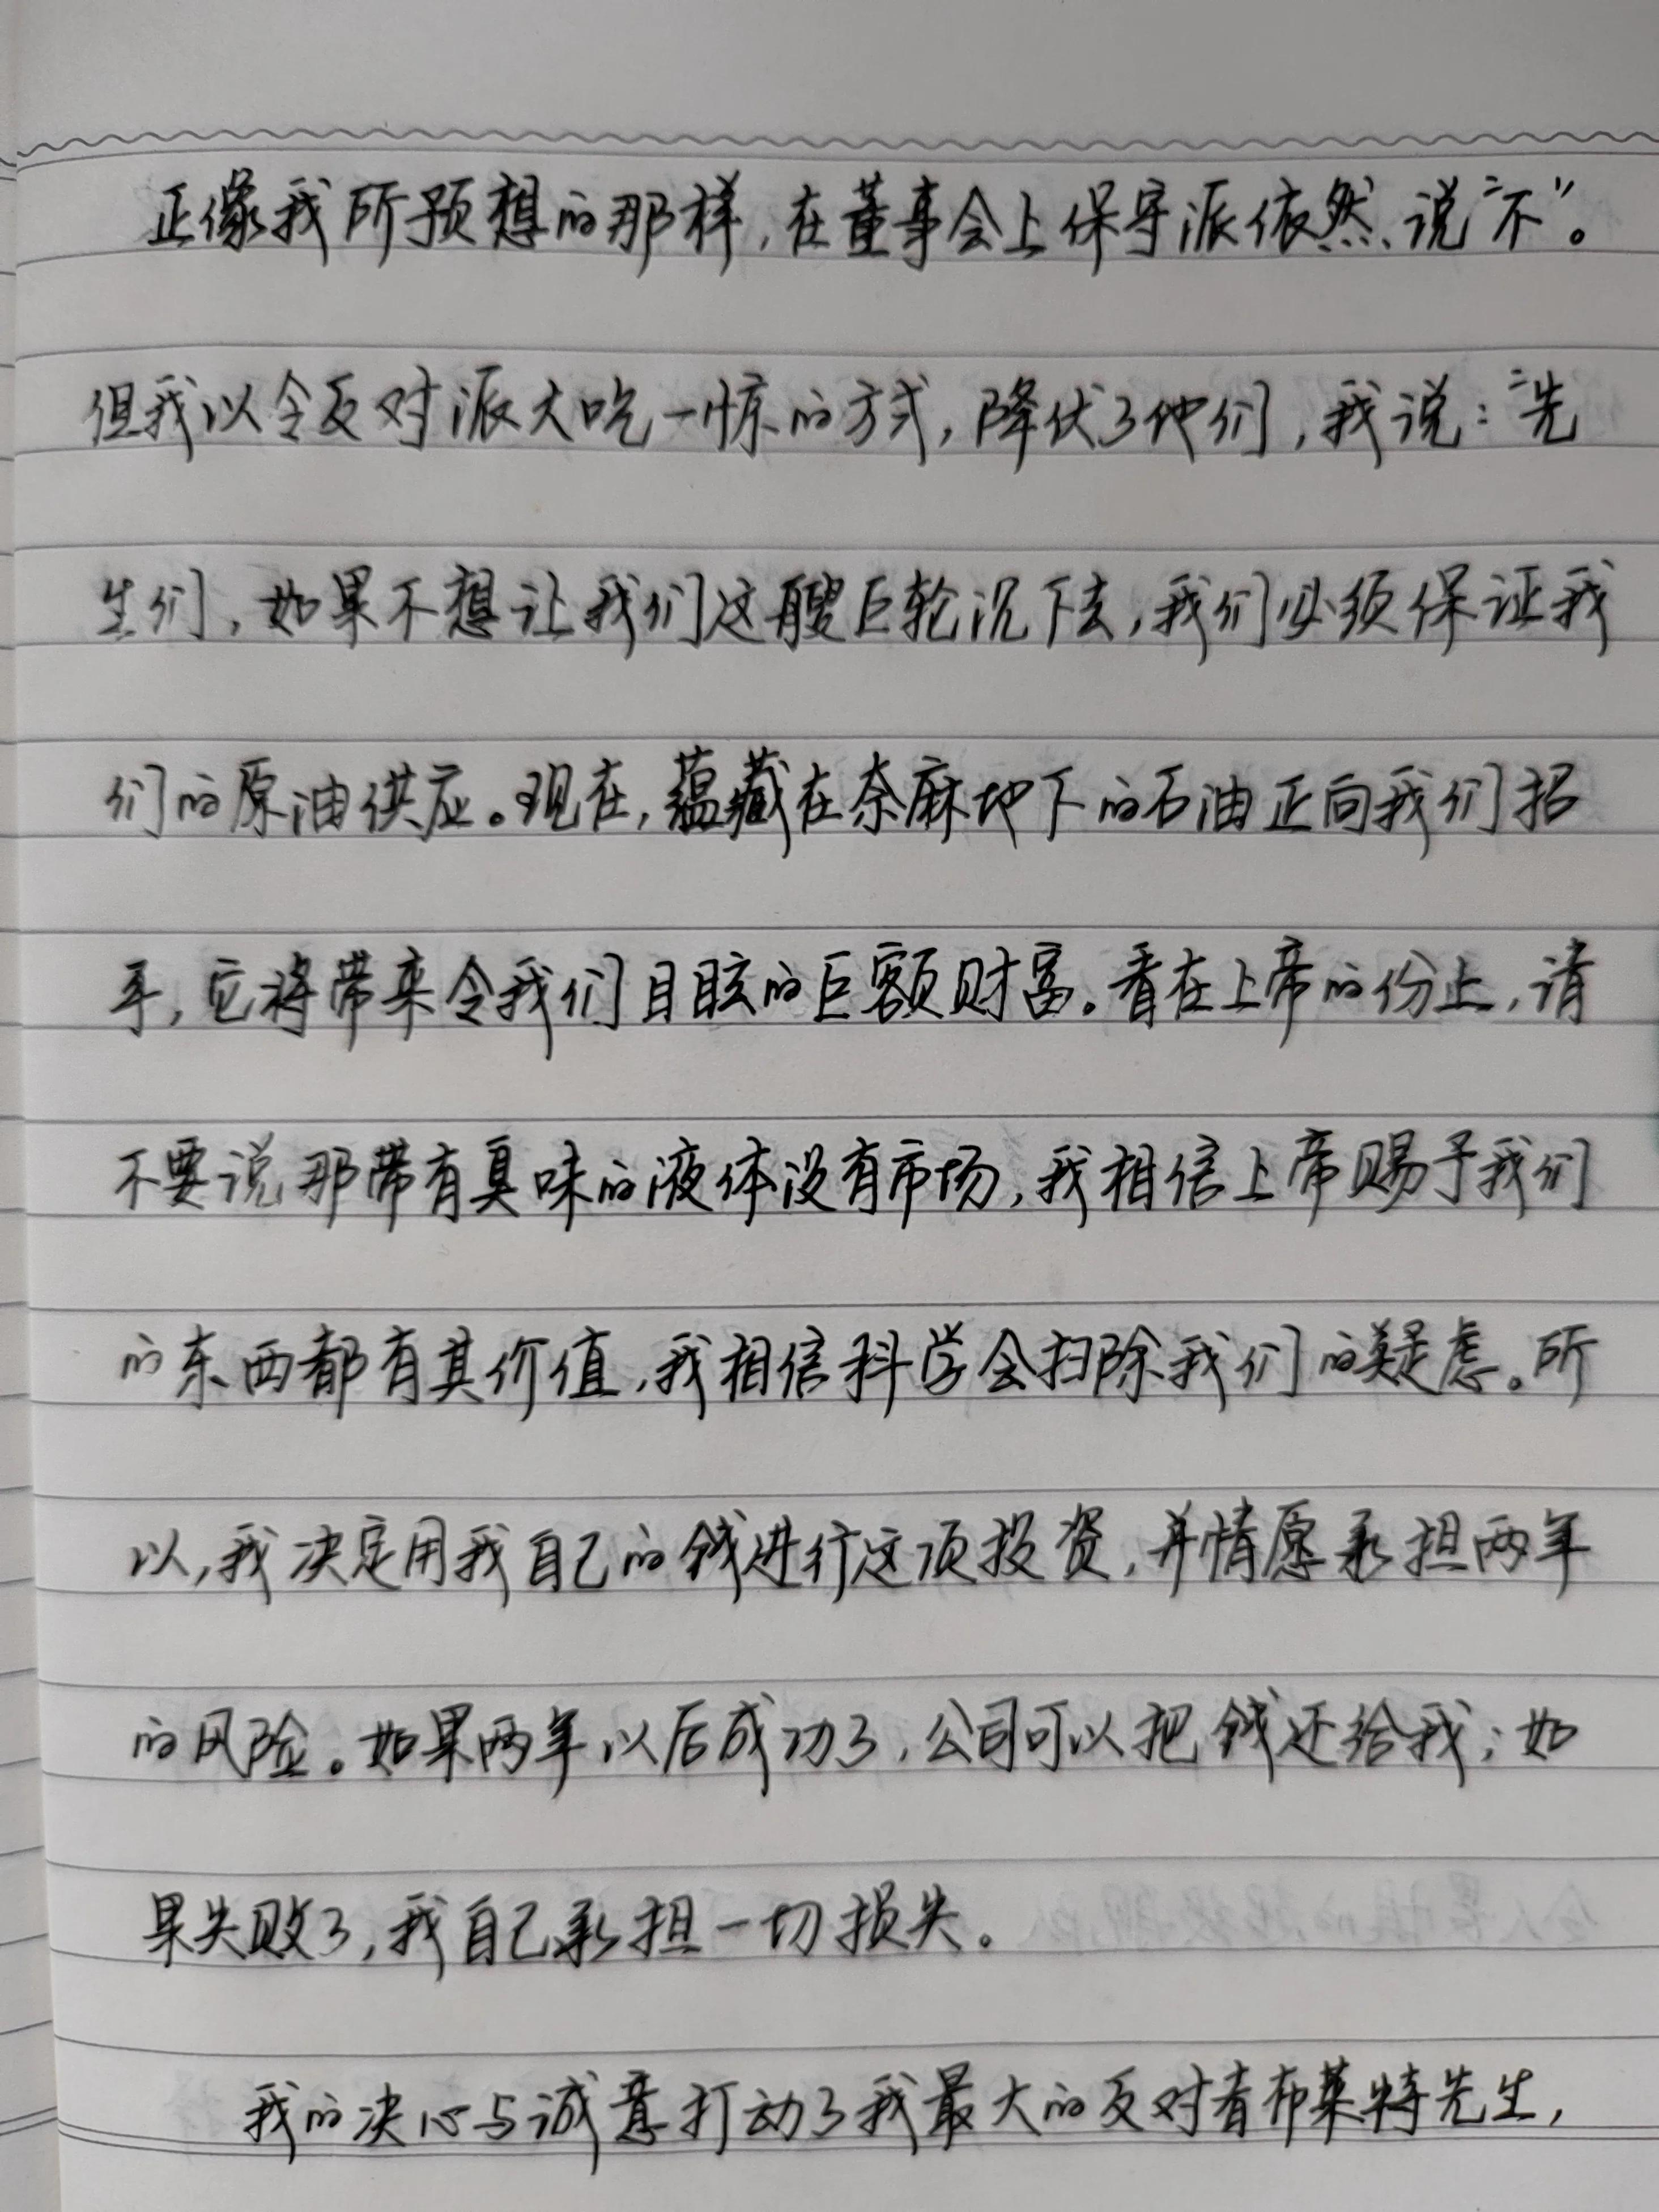 正像我所预想的那样,在董事会上保守派依然说“不”。
但我以令反对派大吃一惊的方式,降伏了他们,我说:“先
生们,如果不想让我们这艘巨轮沉下去,我们必须保证我
们的原油供应。现在,蕴藏在奈麻地下的石油正向我们招
手,它将带来令我们目眩的巨额财富。看在上帝的份上,请
不要说那带有臭味的液体没有市场,我相信上帝赐予我们
的东西都有其价值,我相信科学会扫除我们的疑虑。所
以,我决定用我自己的钱进行这项投资,并情愿承担两年
的风险。如果两年以后成功了,公司可以把钱还给我;如
果失败了,我自己承担一切损失。
我的决心与诚意打动了我最大的反对者布莱特先生,